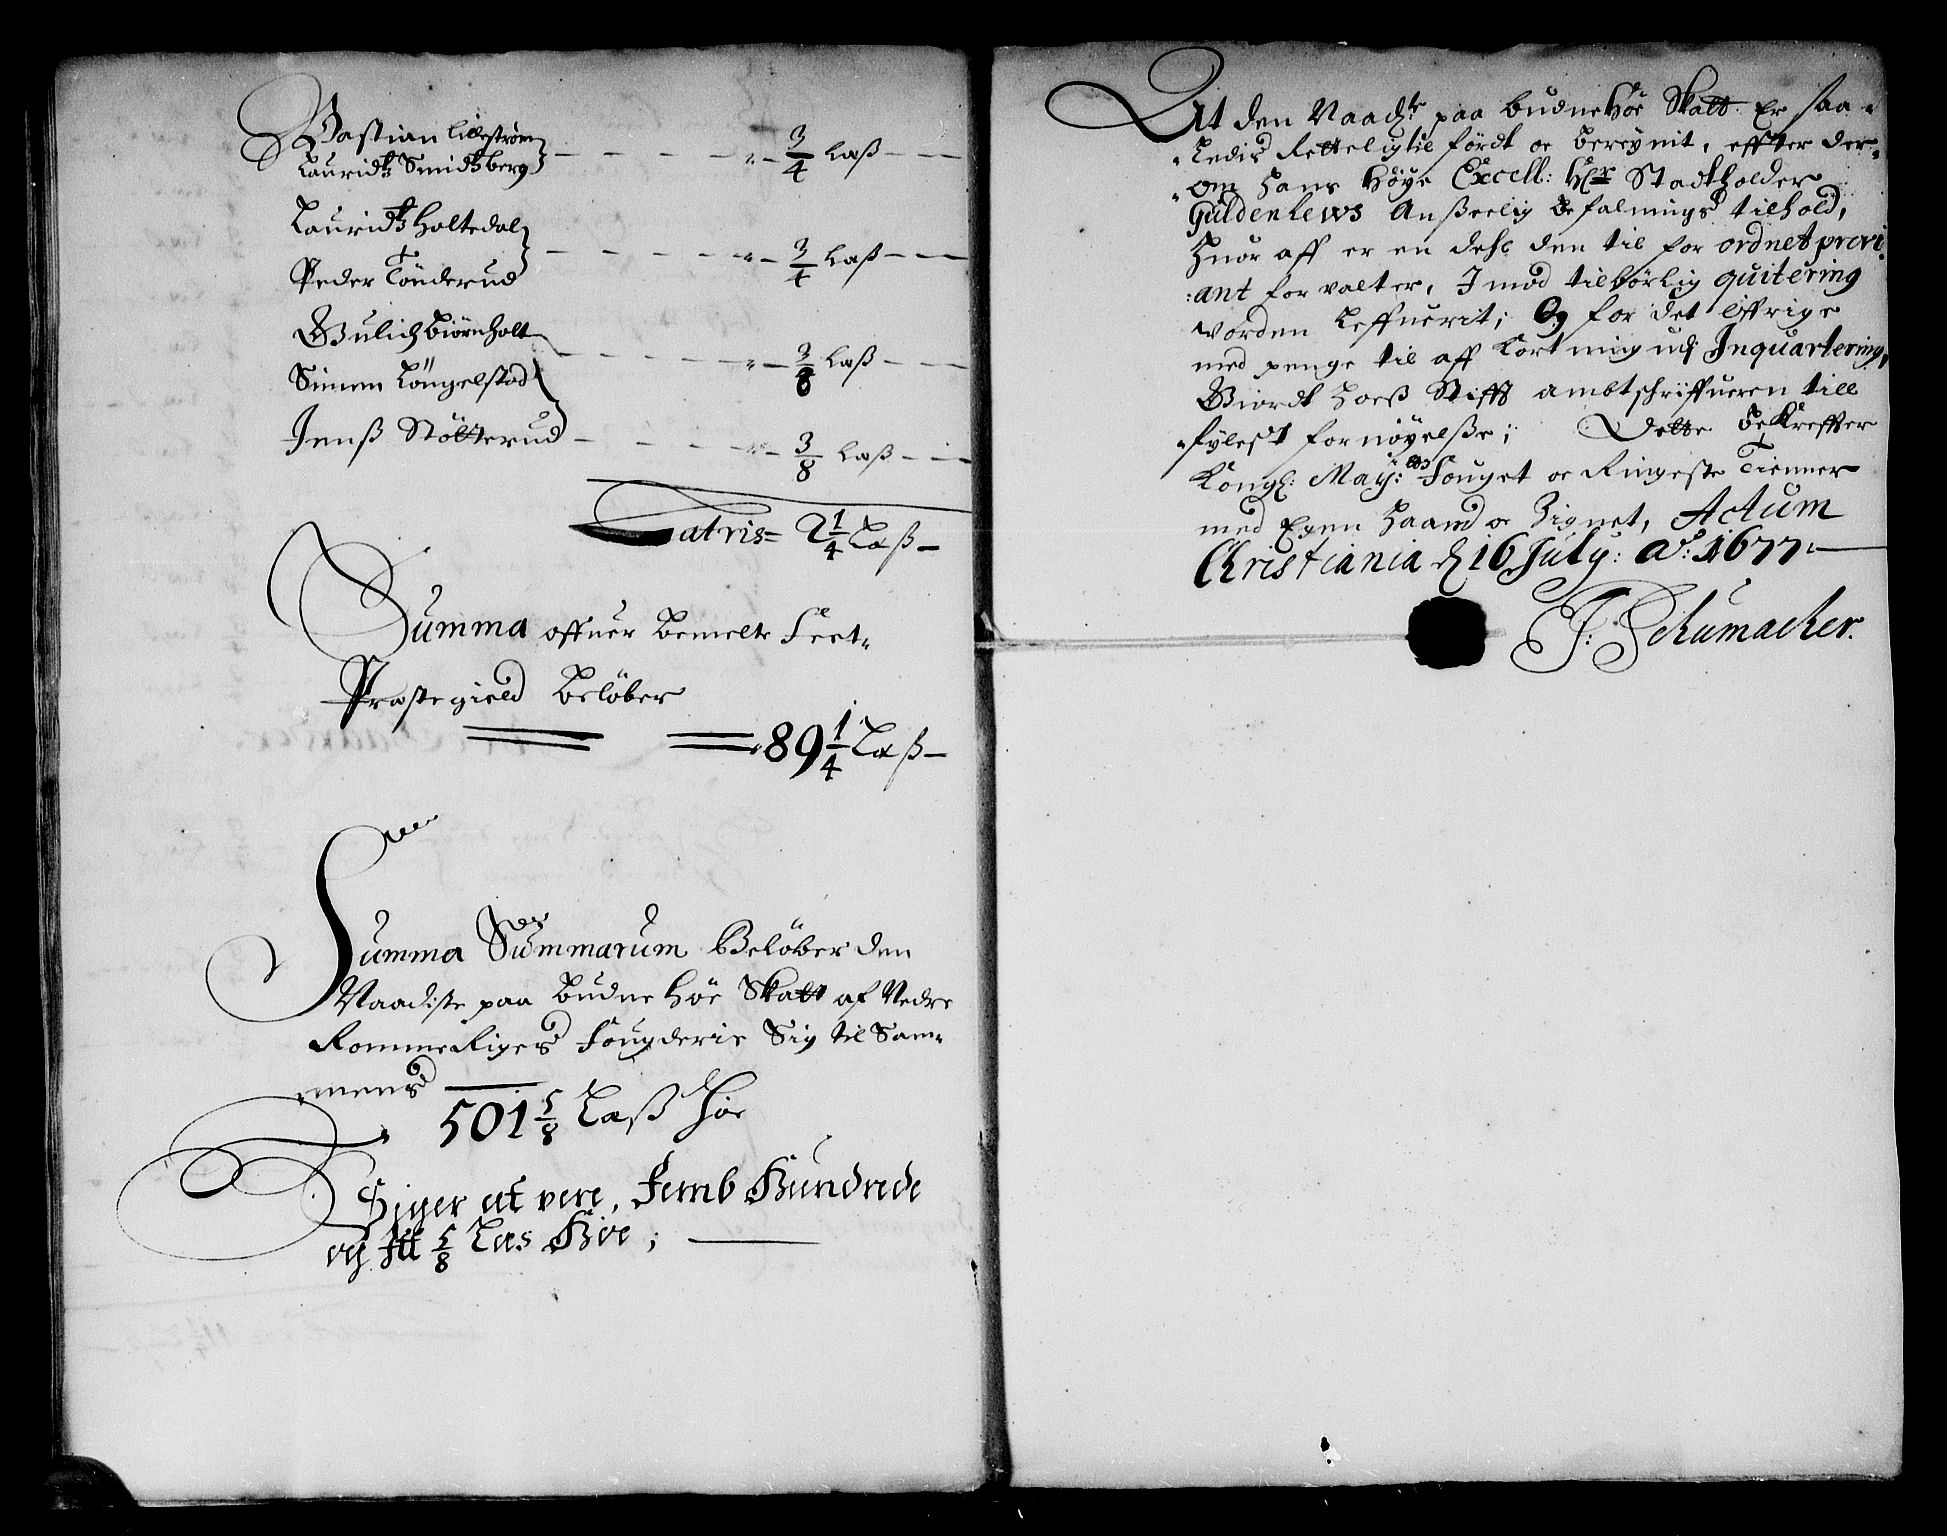 Bastian Lilleström
Lauridtz Smidtzberg — — — — „ — 3/4 Laß — —
Lauridtz Holtedal
Peder Tönderud — — — — „ — 3/4 Laß — —
Gulich Biörnholt
Simen Löngelstad — — — — „ — 3/8 Laß — —
Jenß Stölterud — — — — „ — 3/8 Laß — —
Latris = 2 1/4 Læß —
Summa offuer bemelte Feet„
Prestegield Belöber
89 1/4 Læß —
Summa Summarum Belöber den
Naadiste paa budne Höe Skatt af Nedre
Romme Riges Fougderie Sig til Sam„
mens
501 5/8 Læß Höe
Siger at vere, Femb Hundrede
og Itt 5/8 Læs Höe ;
At den Naadste paa budne Höe Skatt Er saa„
„ledis Retteligtil fördt oc bereignit, effter der„
„om Hans Höye Excell: Her Stadtholder
Güldenlews Anßeelig befalnings tilhold,
Huor aff er en dehl den til for ordnet provi
:ant forvalter, Imod tilbörlig quitering
worden leffuerit; Og for det öffrige
med penge til aff kortning udj Inquartering,
Giordt hoeß Stifft ambtschriffueren till
„fylest fornöyelße; Dette bekreffter
Kongl: May:tts Fouget oc Ringeste Tienner
med Egen Haand oc Zignet, Actum
Christiania d 16 July: Ao: 1677 —
J: Schumacher.